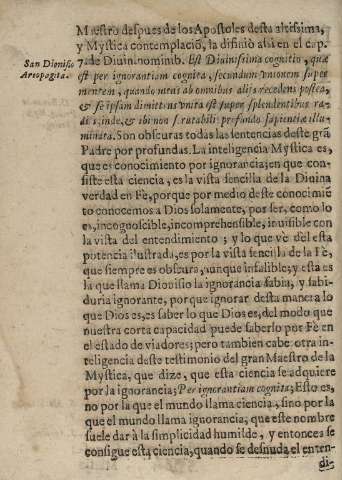 Maestro despues de los Apostoles desta altissima,
y Mystica contemplació, la difinio assi en el cap.
San Dionisio
Areopagita.
7. de Diuin. nominib. Est Diuinissima cognitio, quæ
est per ignorantiam cognita, secundum vnionem super
mentem, quando mens ab omnibus alijs recedens postea,
& se ipsam dimittens vnita est super splendentibus ra-
dijs, inde, & ibi non scrutabili profundo sapientiæ illu-
minata. Son obscuras todas las sentencias deste grā
Padre por profundas. La inteligencia Mystica es,
que es conocimiento por ignorancia; en que con-
siste esta ciencia, es la vista sencilla de la Diuina
verdad en Fè, porque por medio deste conocimiē-
to conocemos a Dios solamente, por ser, como lo
es, incognoscible, incomprehensible, inuisible con
la vista del entendimiento; y lo que vè del esta
potencia ilustrada, es por la vista sencilla de la Fè,
que siempre es obscura, aunque infalible; y esta es
la que llama Dionisio la ignorancia sabia, y sabi-
duria ignorante, porque ignorar desta manera lo
que Dios es, es saber lo que Dios es, del modo que
nuestra corta capacidad puede saberlo por Fè en
el estado de viadores; pero tambien cabe otra in-
teligencia deste testimonio del gran Maestro de la
Mystica, que dize, que esta ciencia se adquiere
por la ignorancia; Per ignorantiam cognita; Esto es,
no por la que el mundo llama ciencia, sino por la
que el mundo llama ignorancia, que este nombre
suele dar à la simplicidad humilde, y entonces se
consigue esta ciencia, quando se desnuda el enten-
di-